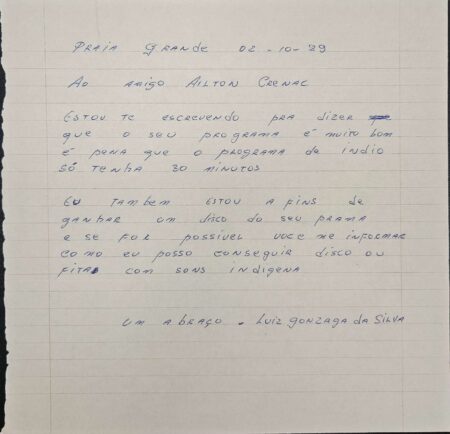 PRAIA GRANDE 02-10-89
AO AMIGO AILTON CRENAC
ESTOU TE ESCREVENDO PRA DIZER
QUE O SEU PROGRAMA É MUITO BOM
É PENA QUE O PROGRAMA DE INDIO
SÓ TENHA 30 MINUTOS
EU TAMBEM ESTOU A FINS DE
GANHAR UM DISCO DO SEU PRAMA
E SE FOR POSSÍVEL VOCE ME INFORMAR
COMO EU POSSO CONSEGUIR DISCO OU
FITAS COM SONS INDIGENA
UM ABRAÇO. LUIZ GONZAGA DA SILVA